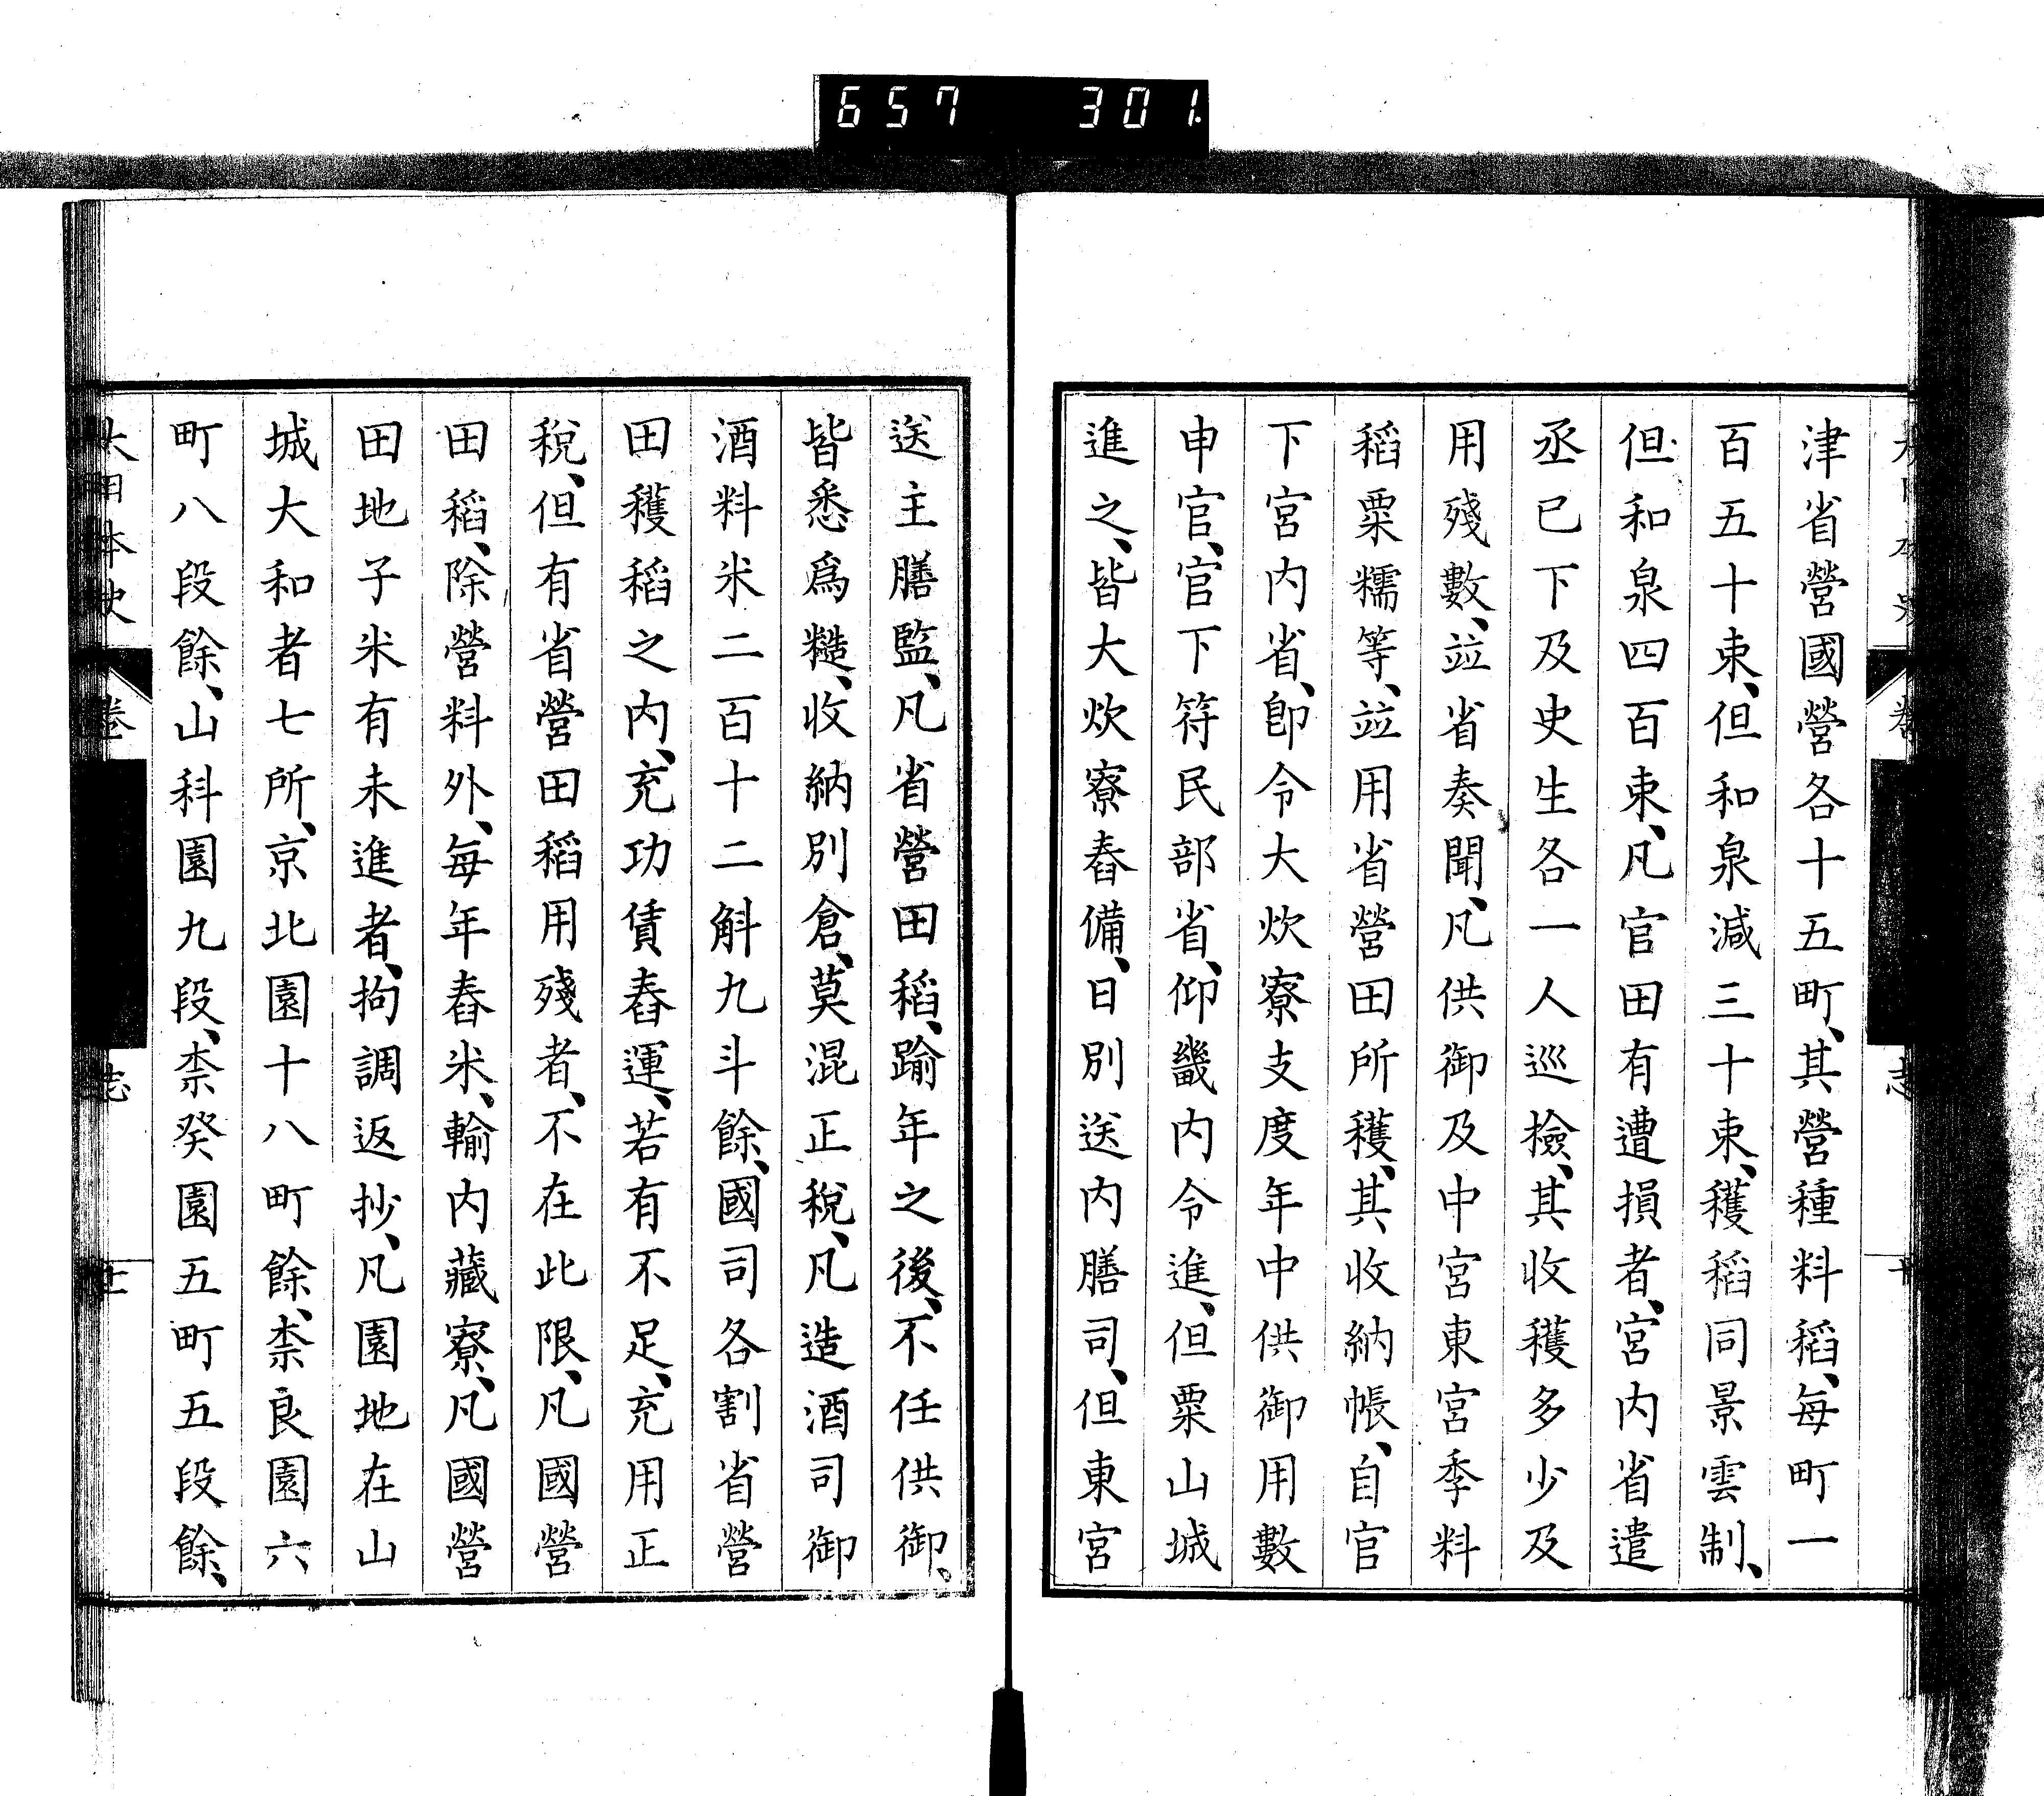 657 301
津省營國營各十五町、其營種料稻、每町一
百五十束、但和泉減三十束、穫稻同景雲制、
但和泉四百束、凡官田有遭損者、宮内省遣
丞已下及史生各一人巡檢、其收穫多少及
用殘數、竝省奏聞、凡供御及中宮東宮季料
稻粟糯等、竝用省營田所穫、其收納帳、自官
下宮内省、卽令大炊寮支度年中供御用數
申官、官下符民部省、仰畿内令進、但粟山城
進之、皆大炊寮舂備、日別送内膳司、但東宮
送主膳監、凡省營田稻、踰年之後、不任供御、
皆悉爲糙、收納別倉、莫混正稅、凡造酒司御
酒料米二百十二斛九斗餘、國司各割省營
田穫稻之内、充功賃舂運、若有不足、充用正
稅、但有省營田稻用殘者、不在此限、凡國營
田稻、除營料外、每年舂米、輸内藏寮、凡國營
田地子米有未進者、拘調返抄、凡園地在山
城大和者七所、京北園十八町餘、柰良園六
町八段餘、山科園九段、柰癸園五町五段餘、
大日本史 卷 志 十一